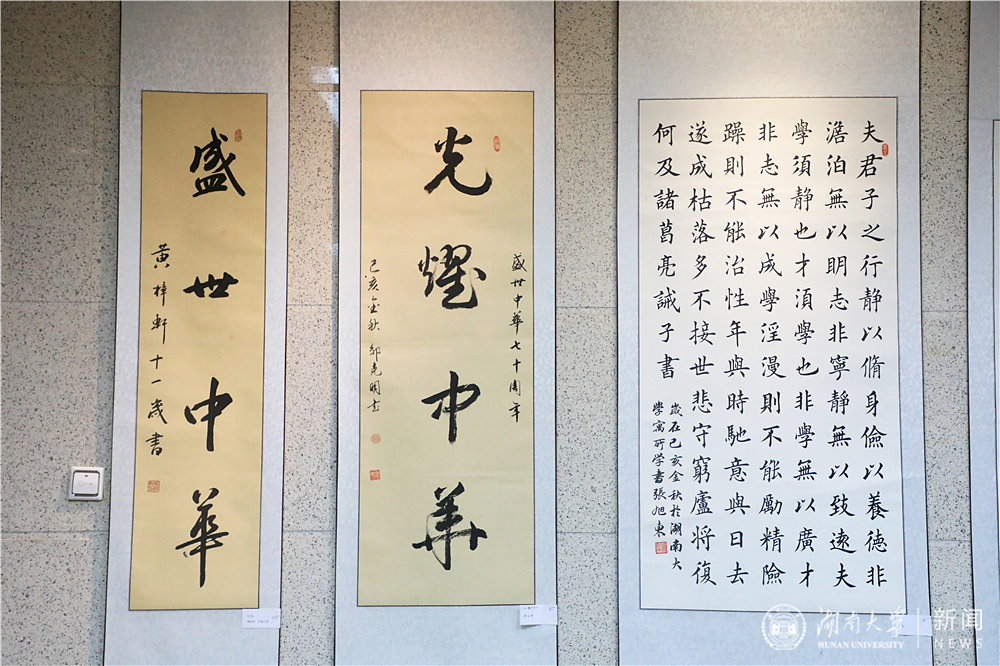 盛世中華
黄梓軒十一歲書
盛世中華七十周年
光耀中華
己亥金秋
夫君子之行静以脩身儉以養德非
澹泊無以明志非寧静無以致遠夫
學須静也才湏學也非學無以廣才
非志無以成學淫漫則不能勵精險
躁則不能治性年與時馳意與日去
遂成枯落多不接世悲守窮廬將復
何及諸葛亮誡子書
歲在己亥金秋於湖南大
學寓所学書張旭東
湖南大學
HUNAN UNIVERSITY
新闻
NEWS